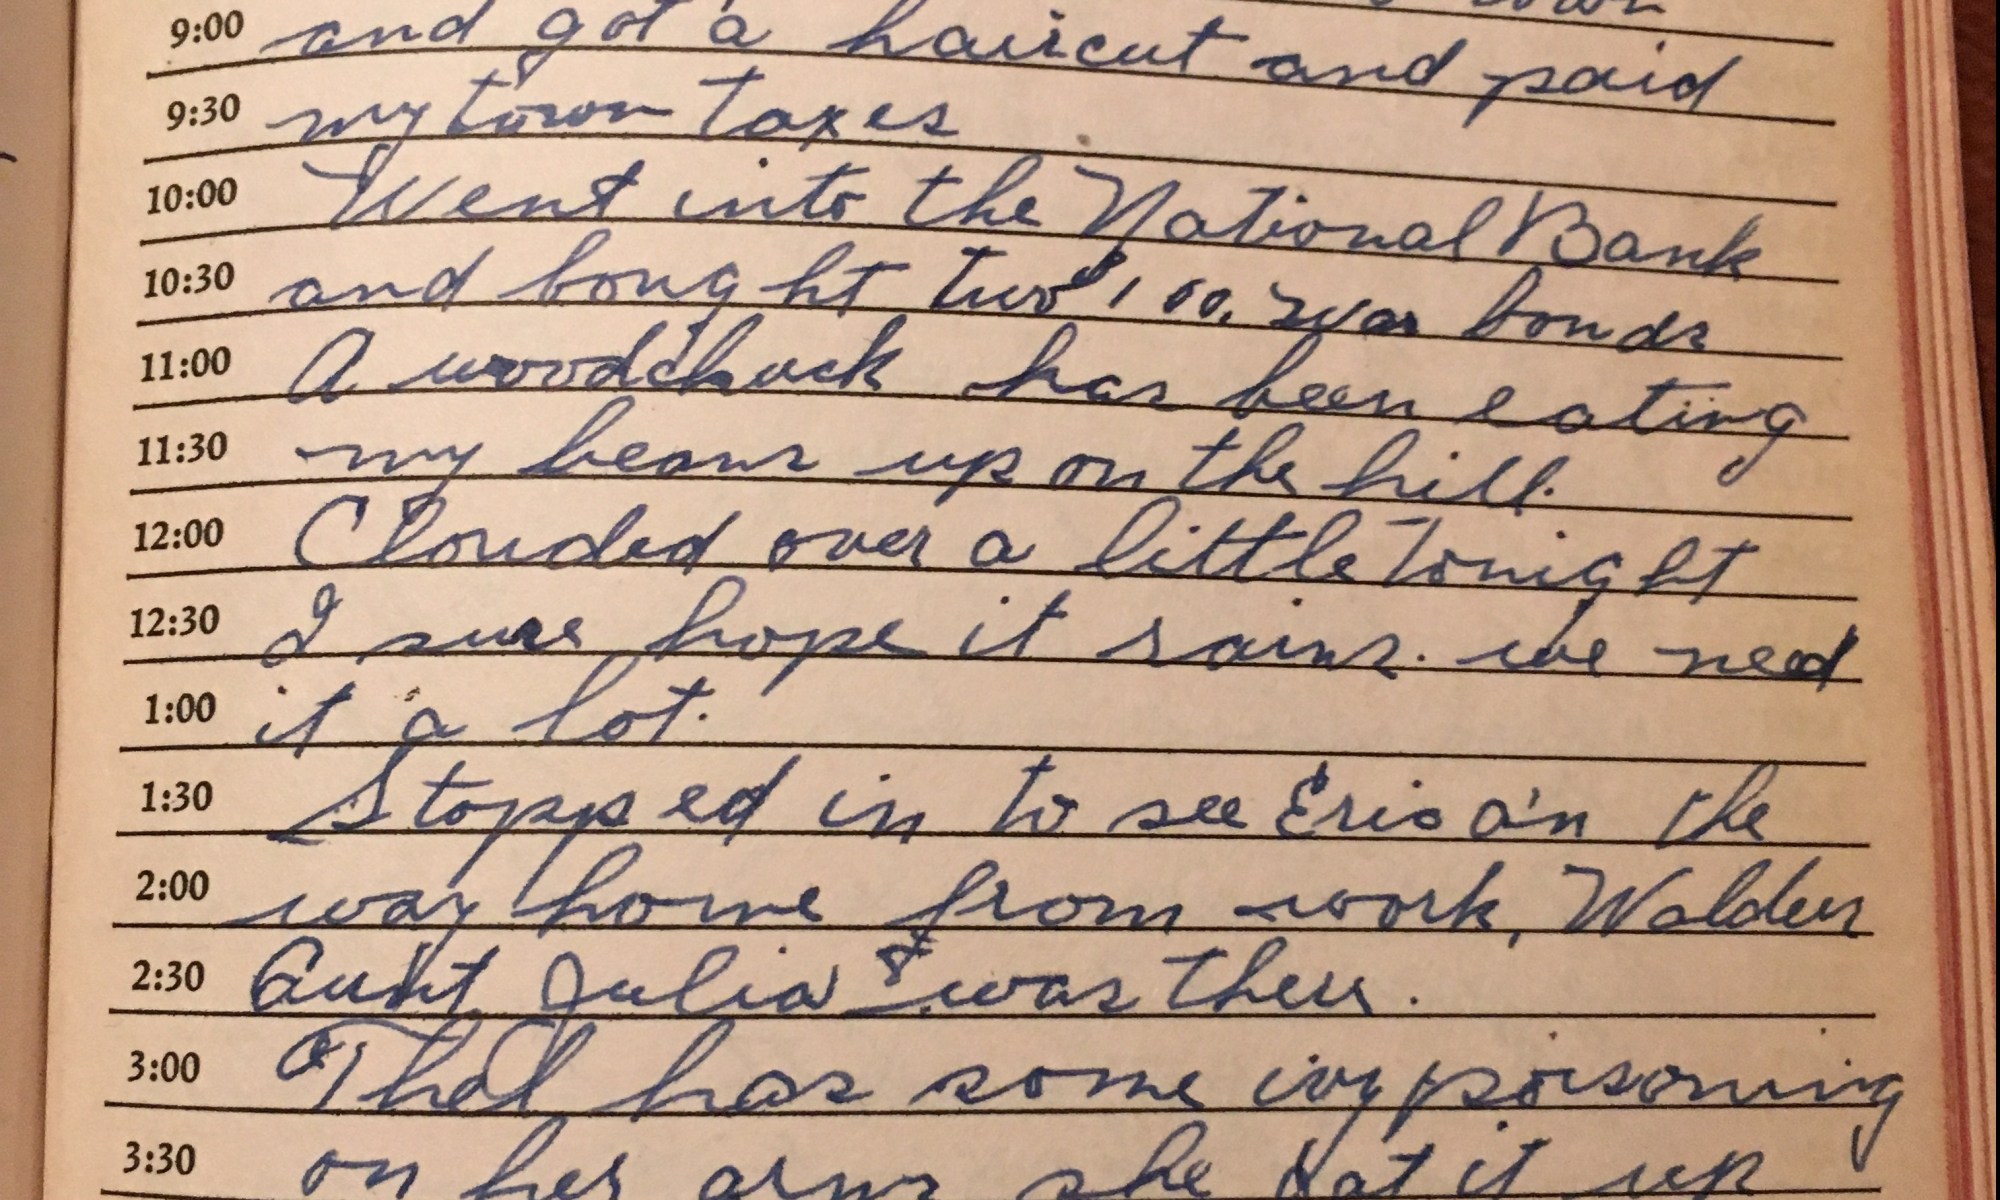 town
9:00 and got a haircut and paid
9:30 my town taxes
10:00 Went into the National Bank
10:30 and bought two $100. war bonds
11:00 A woodchuck has been eating
11:30 my beans up on the hill.
12:00 Clouded over a little Tonight
12:30 I sure hope it rains. we need
1:00 it a lot.
1:30 Stopped in to see on the
2:00 way home from work, Walden
2:30 Aunt Julia & was there.
3:00 Thel has some ivy poisoning
3:30 on her arms she it up